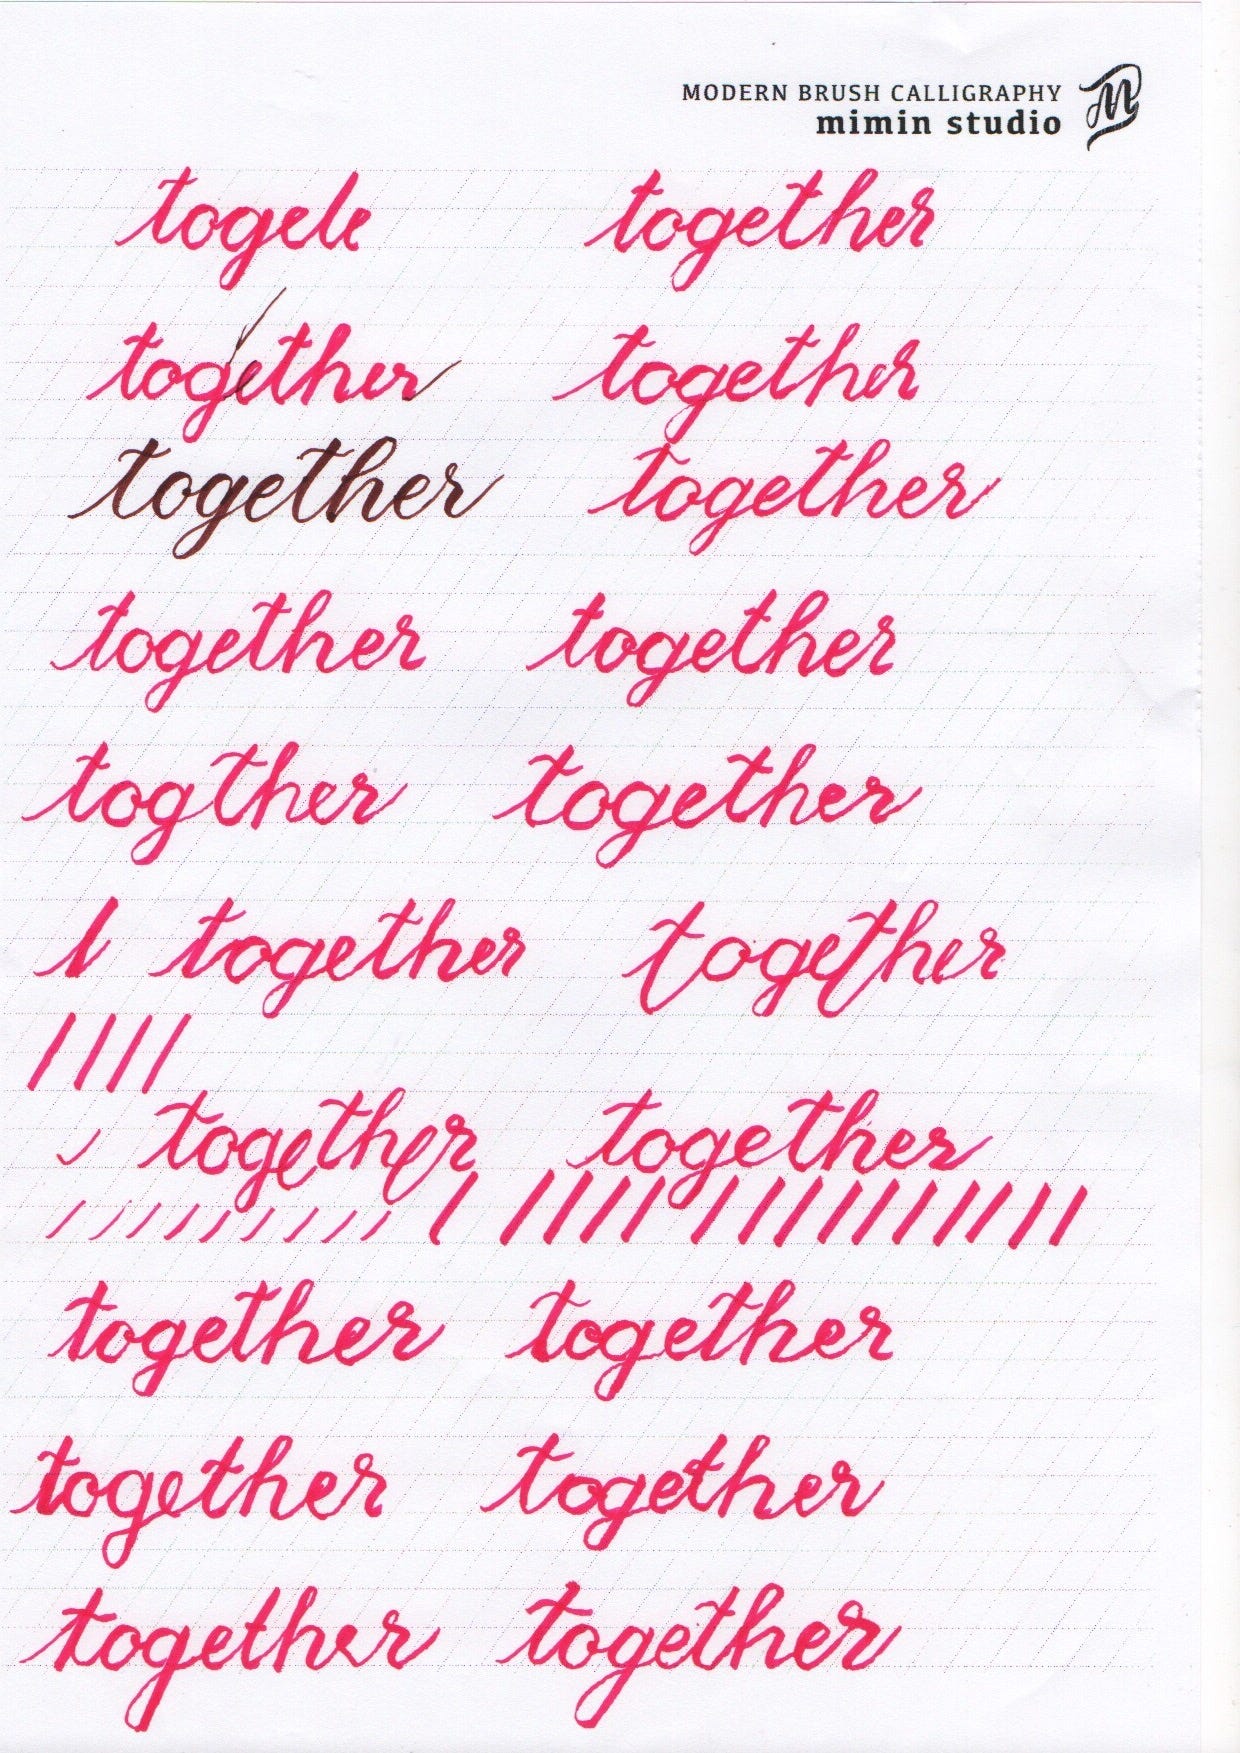 MODERN BRUSH CALLIGRAPHY
mimin studio
togele together
together together
together together
together together
togther together
together together
together together
together together
together together
together together